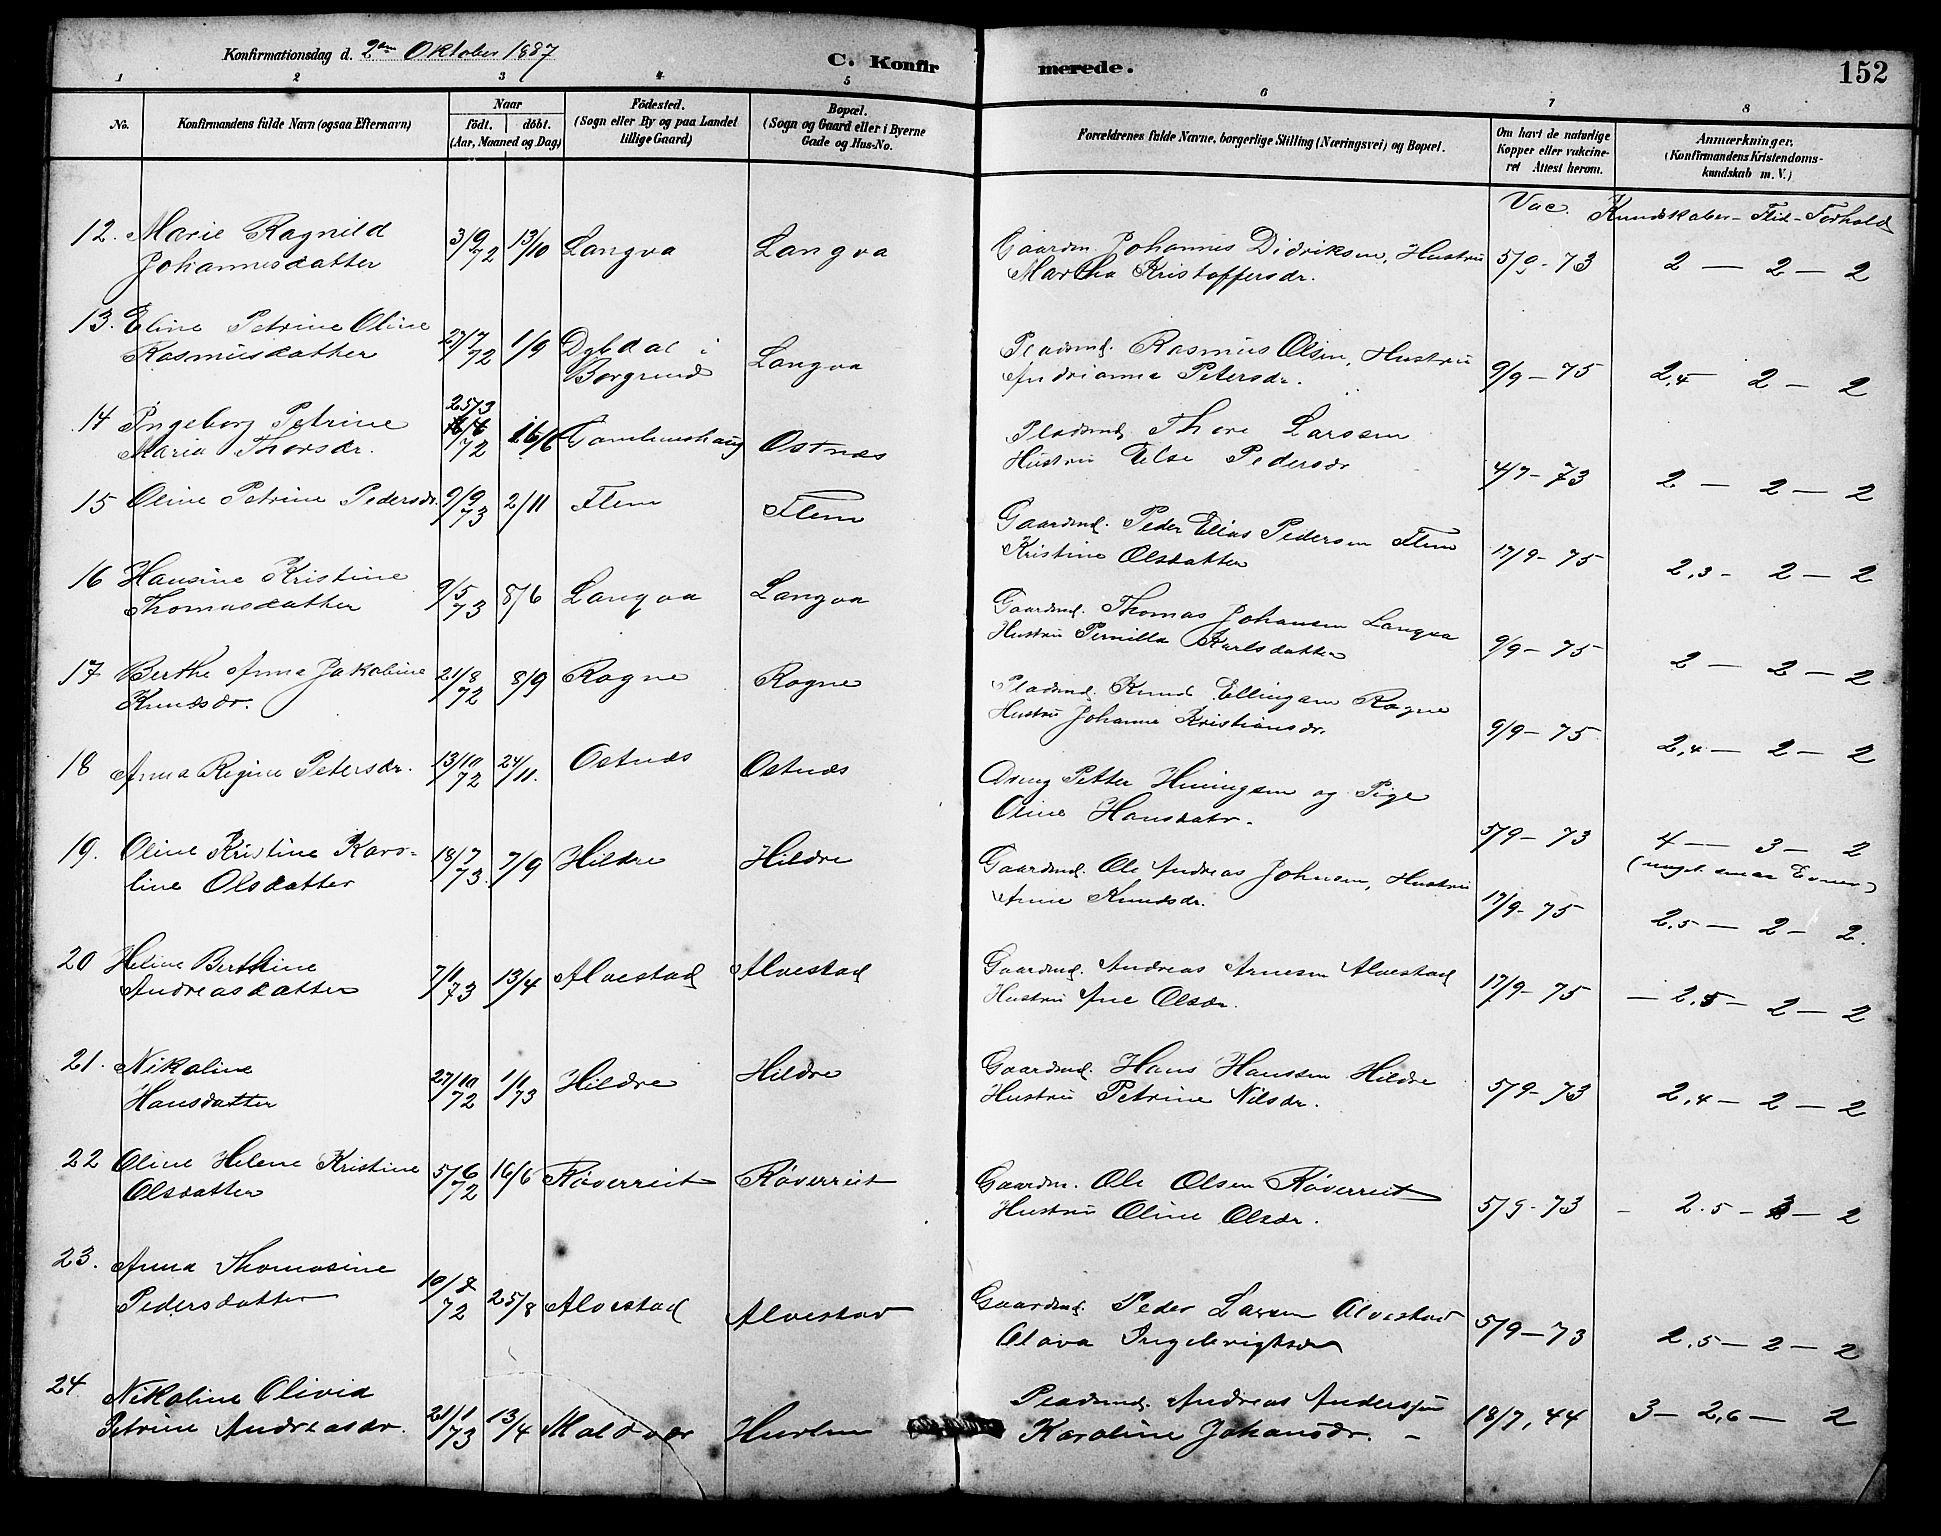 Konfirmationsdag d. 2den Oktober 1887
C. Konfirmerede.
152
1 2 3 4 5 6 7 8
No.
Konfirmandens fulde Navn (ogsaa Efternavn)
Naar
födt. döbt.
(Aar, Maaned og Dag)
Födested.
(Sogn eller By og paa Landet
tillige Gaard)
Bopæl.
(Sogn og Gaard eller i Byerne
Gade og Hus-No.
Forældrenes fulde Navne, borgerlige Stilling (Næringsvei) og Bopæl.
Om havt de naturlige
Kopper eller vakcine-
ret Attest herom.
Anmærkninger.
(Konfirmandens Kristendoms-
kundskab m. V.)
Vac. Kundskaber - Flid - Forhold
12. Marie Ragnild 3/9 72 13/10 Langva Langva Gaardm. Johannes Didriksen, Hustru 5/9 - 73 2 — 2 — 2
Johannesdatter Martha Kristoffersdr.
13. Eline Petrine Oline 27/7 72 1/9 Dybdal i Langva Pladsmd. Rasmus Olsen, Hustru 9/9 - 75 2,4 2 — 2
Rasmusdatter Borgund Andrianna Petersdr.
14 Ingeborg Petrine 25/3 72 16/6 Ostnæs Pladsmd. Thore Larsen 4/7 - 73 2 — 2 — 2
Maria Thorsdr. Hustru Else Pedersdr
15 Oline Petrine Pedersdr. 9/9 73 2/11 Flem Flem Gaardmd. Peder Elias Pedersen Flem 17/9 - 75 2,3 - 2 — 2
Kristine Olsdatter
16 Hansine Kristine 9/5 73 8/6 Langva Langva Gaardmd. Thomas Johansen Langva 9/9 - 75 2 — 2 — 2
Thomasdatter Hustru Pernilla Karlsdatter
17 Berthe Anna Jakobine 21/8 72 8/9 Rogne Rogne Pladsmd. Knud Ellingsen Rogne 9/9 - 75 2,4 — 2 — 2
Knudsdr. Hustru Johanna Kristiansdr.
18 Anna Regine Petersdr. 13/10 72 24/11. Ostnæs Ostnæs Petter Hiningsen og Pige 5/9 - 73 4 — 3 — 2
Oline Hansdatr. (meget smaa Evner)
19. Oline Kristine Karo- 18/7 73. 7/9 Hildre Hildre Gaardmd. Ole Andreas Johnsen, Hustru 17/9 - 75 2.5 — 2 — 2.
line Olsdatter Anne Knudsdr.
20 Heline Berthine 7/1 73 13/4 Alvestad Alvestad Gaardmd. Andreas Arnesen Alvestad 17/9 - 75 — 2.5 — 2 — 2
Andreasdatter Hustru Ane Olsdr.
21. Nikoline 27/10 72 1/1 73 Hildre Hildre Gaardmd. Hans Hanssen Hildre 5/9 - 73 2,4 — 2 — 2
Hansdatter Hustru Petrine Nilsdr.
22 Oline Helene Kristine 5/6 72 16/6 Røverreit Røverreit Gaardm. Ole Olsen Røverreit 5/9 - 73 - 2.5 — — 2
Olsdatter Hustru Oline Olsdr.
23. Anna Thomasine 72 25/8 Alvestad Alvestad Gaardmd. Peder Larsen Alvestad 5/9 - 73 2,5 — 2 — 2
Pedersdatter Olava Ingebrigtsdr
24 Nikoline Olivia 21/1 73 13/4 Pladsmd. Andreas Anderssen 18/7, 44 3 — 2,6 — 2
Petrine Andreasdr. Karoline Johansdr. -